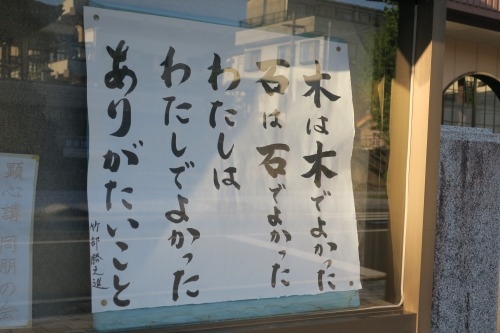 木は木でよかった
石は石でよかった
わたしは
わたしでよかった
ありがたいこと
竹部勝之進